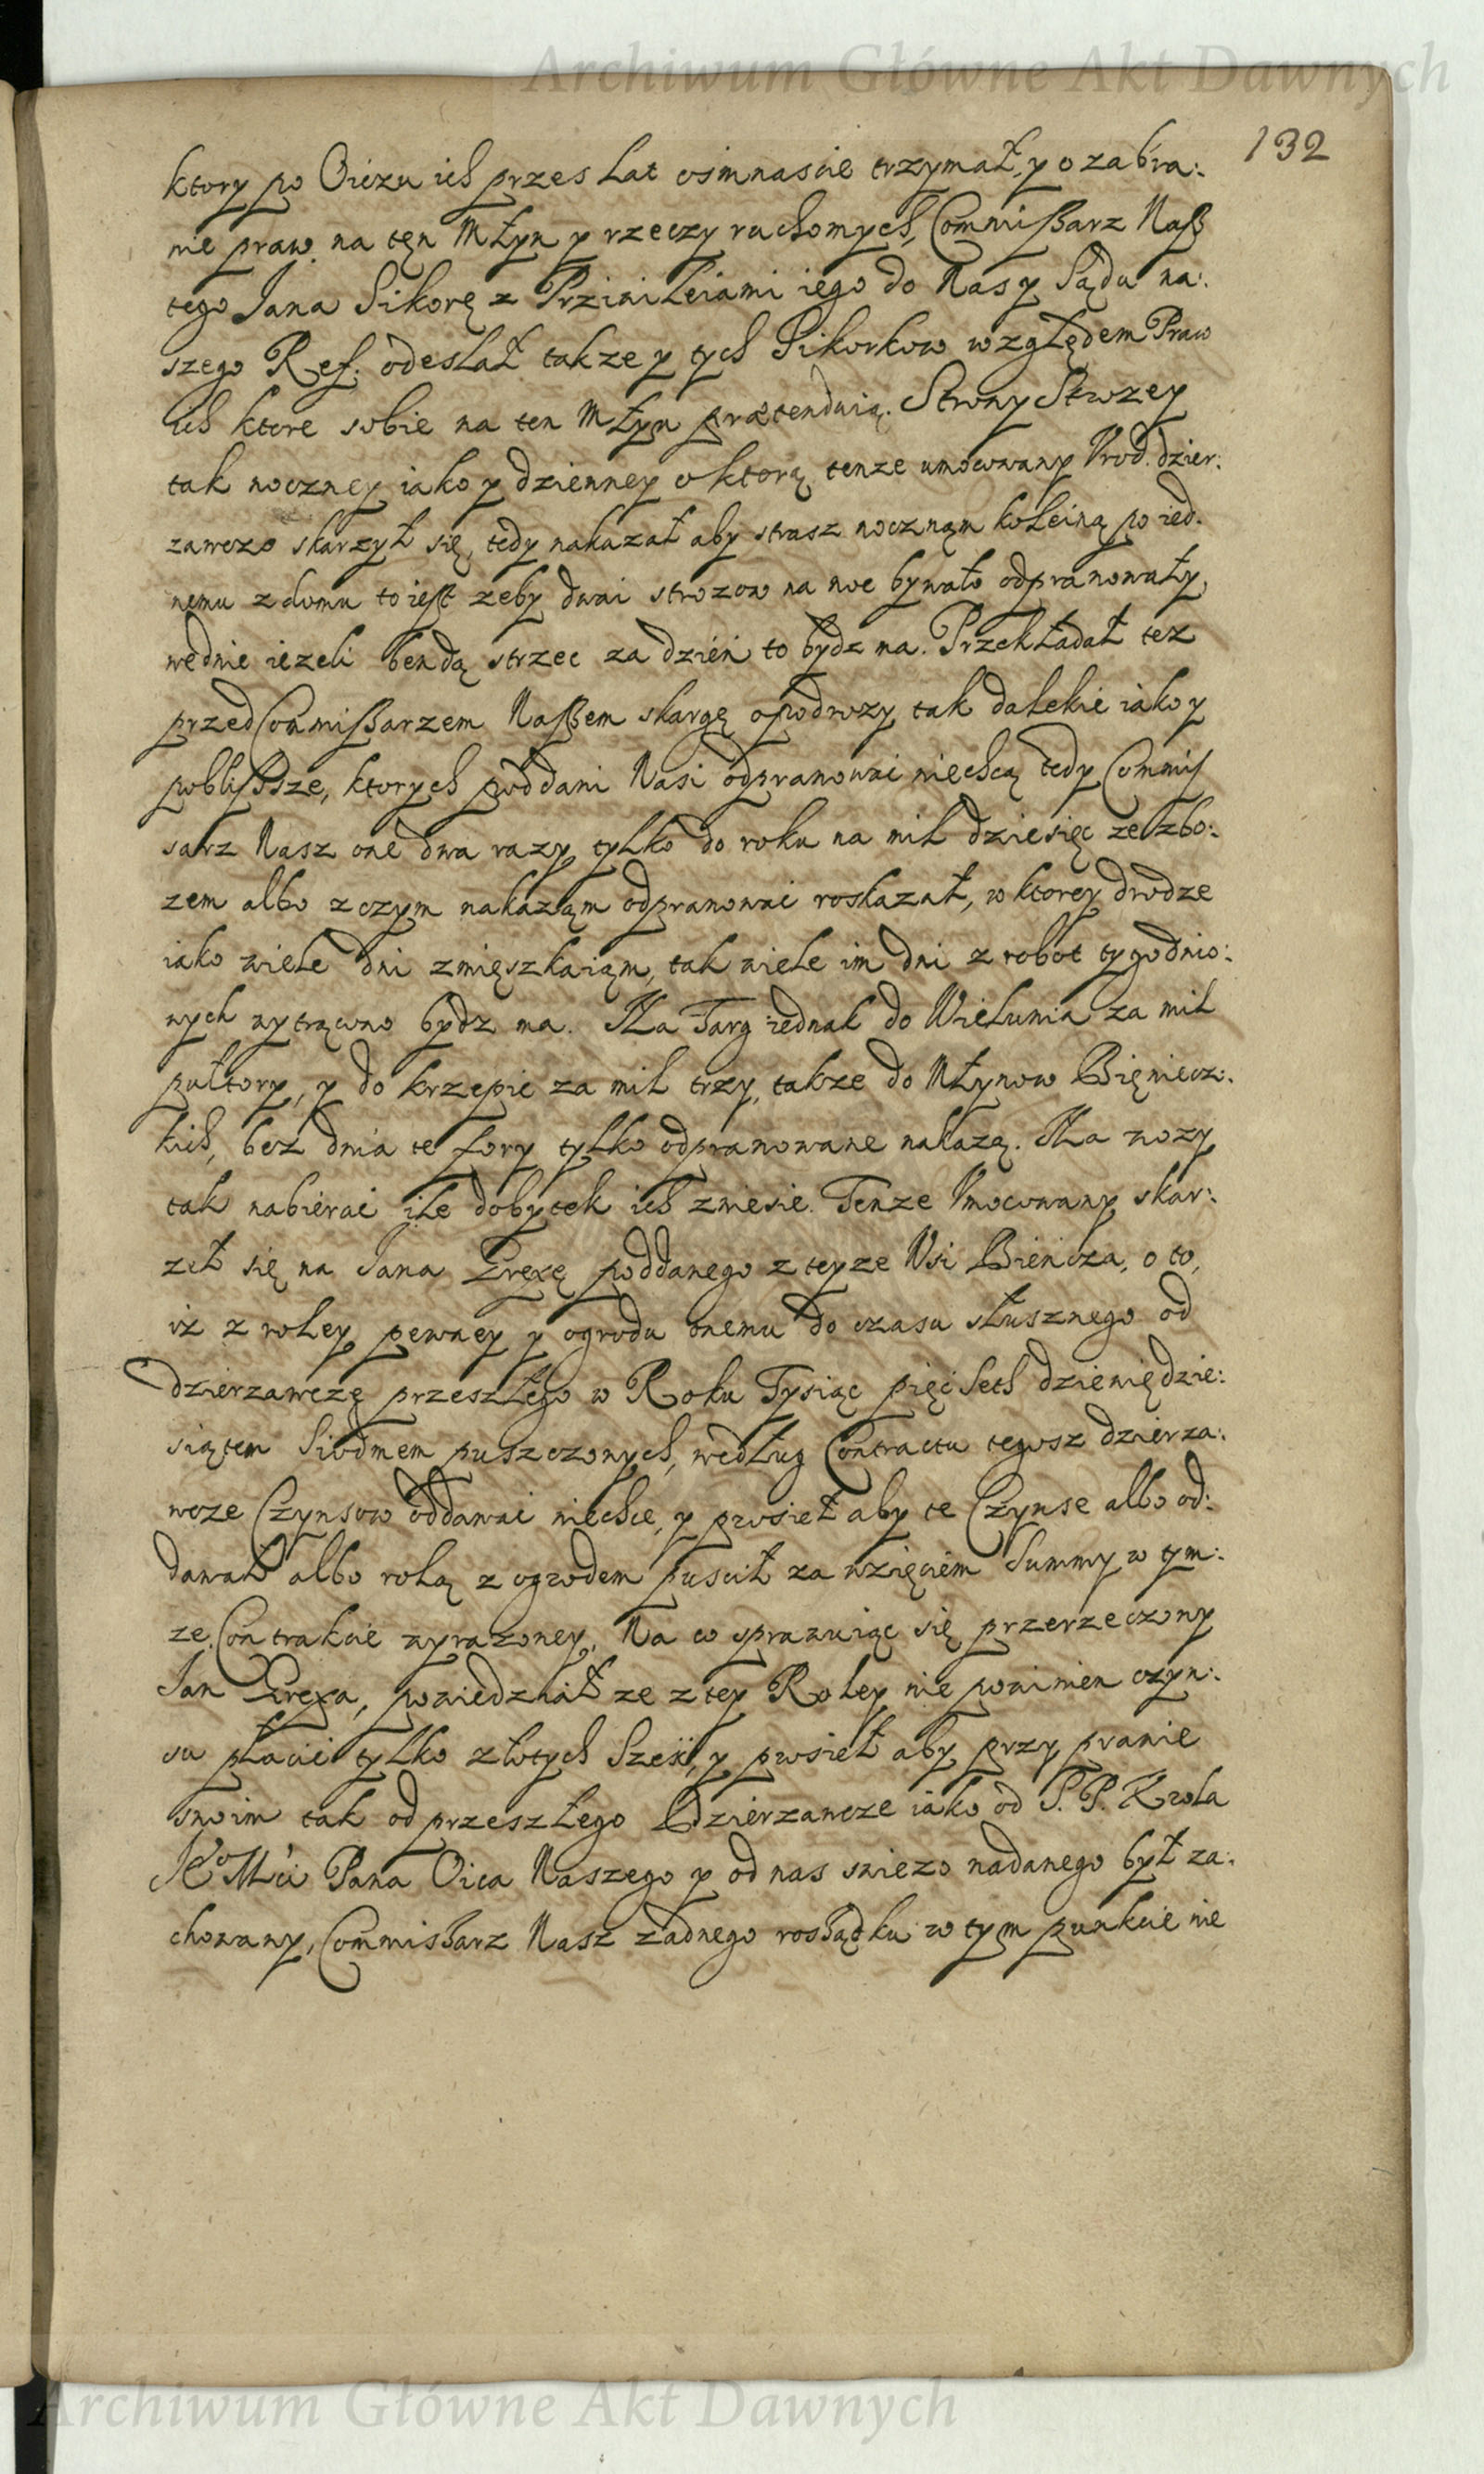 Archiwum Główne Akt Dawnych
132
ktory po Oiczu ich przes Lat osimnascie trzymał, y o zabra:
nie praw. na tęn Młyn y rzeczy ruchomych, Commißarz Naß
tego Jana Sikorę z Przivileiami iego do Nas y Sądu na:
szego Ref: odesłał takze y tych Sikorkow względem Praw
ich ktore sobie na ten Młyn prætenduią. Strony Strozey
tak noczney iako y dzienney o ktorą tenze umocowany Urod. dzier:
zawczo skarzył się, tedy nakazał aby strasz nocznąm koleiną po ied:
nemu z domu to iest zeby dwai strozow na noc bywało odprawowały,
wednie iezeli bendą strzec za dzień to bydz ma. Przekładał tez
przed Commißarzem Naßem skargę o podrozy tak dalekie iako y
poblißsze, ktorych poddani Nasi odprawowai niechcą tedy Commis
sarz Nasz one dwa razy tylko do roku na mil dziesięc ze zbo:
zem albo z czym nakaząm odprawowai roskazał, w ktorey drodze
iako wiele dni zmięszkaiąm, tak wiele im dni z robot tygodnio:
wych wytrącono bydz ma. Na Targ iednak do Wielunia za mil
pułtory, y do krzepic za mil trzy, takze do Młynow Bięniecz:
kich, bez dnia te fory tylko odprawowane nakazą. Na wozy
tak nabierai ile dobytek ich zwiesie. Tenze Umocowany skar:
zeł się na Jana Grexę poddanego z teyze Wsi Bieńcza, o to,
iz z roley pewney y ogrodu onemu do czasu słusznego od
dzierzawczę przeszłego w Roku Tysiąc pięć Seth dziewiędzie:
siątem Siodmem puszczonych, według Contractu tegosz dzierza:
wcze Czynsow oddawai niechce, y prosieł aby te Czynse albo od:
dawał albo rolą z ogrodem puscił za wzięciem Summy w tym:
ze Contrakcie wyrazoney. Na co sprawuiąc się przerzeczony
Jan Grexa, powiedział ze z tey Roley nie powinien czyn:
su płacić tylko złotych Szeić, y prosieł aby przy prawie
swoim tak od przeszłego Dzierzawcze iako od S. P. Krola
JKo Mći Pana Oica Naszego y od nas swiezo nadanego był za:
chowany, Commissarz Nasz zadnego rosSądku w tym punkcie nie
Archiwum Główne Akt Dawnych